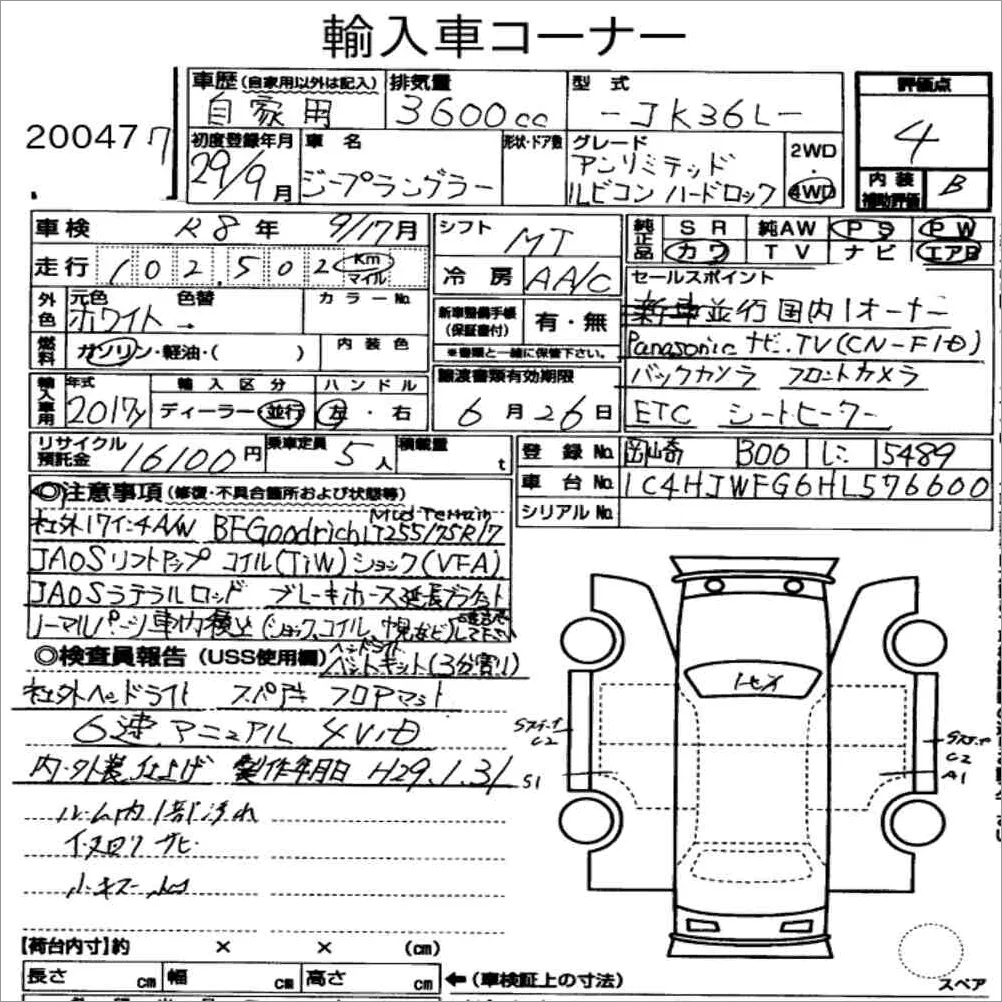 輸入車コーナー
車歴 (自家用以外は記入) 排気量 型式 評価点
自家用 3600cc -JK36L- 4
20047 7
初度登録年月 車名 形状・ドア数 グレード 2WD・4WD
29/9月 ジープラングラー アンリミテッド
ルビコン ハードロック
内装補助評価 B
車検 R8年 9/17月 シフト MT
純正品 SR 純AW PS PW
カワ TV ナビ エアB
走行 102,502 Km マイル 冷房 AA/C
セールスポイント
外色 元色 色替 カラーNo.
ホワイト →
新車整備手帳(保証書付) 有・無
※書類と一緒に保管下さい。
新車並行 国内1オーナー
燃料 ガソリン・軽油・( ) 内装色
Panasonic ナビ.TV(CN-F1D)
輸入車用 年式 輸入区分 ハンドル 譲渡書類有効期限
2017y ディーラー・並行 左・右 6月26日
バックカメラ フロントカメラ
ETC シートヒーター
リサイクル預託金 16100円 乗車定員 5人 積載量 t
登録No. 岡崎 300 ル 5489
車台No. 1C4HJWFG6HL576600
シリアルNo.
◎注意事項 (修復・不具合箇所および状態等)
社外17インチA/W BFGoodrich Mud Terrain LT255/75R17
JAOSリフトアップ コイル(TiW)ショック(VFA)
JAOSラテラルロッド ブレーキホース延長ブラケット
ノーマルパーツ車内積込(ショック、コイル、
◎検査員報告 (USS使用欄)
ヘッドライト
ベントキット(3分割り)
社外ヘッドライト スペア付 フロアマット
6速マニュアル 4WD
内・外装仕上げ 製作年月日 H29.1.31
ルーム内1部汚れ
下回りサビ
小キズ
C2
S1
C2
A1
【荷台内寸】約 × × (cm)
長さ cm 幅 cm 高さ cm ←(車検証上の寸法)
スペア